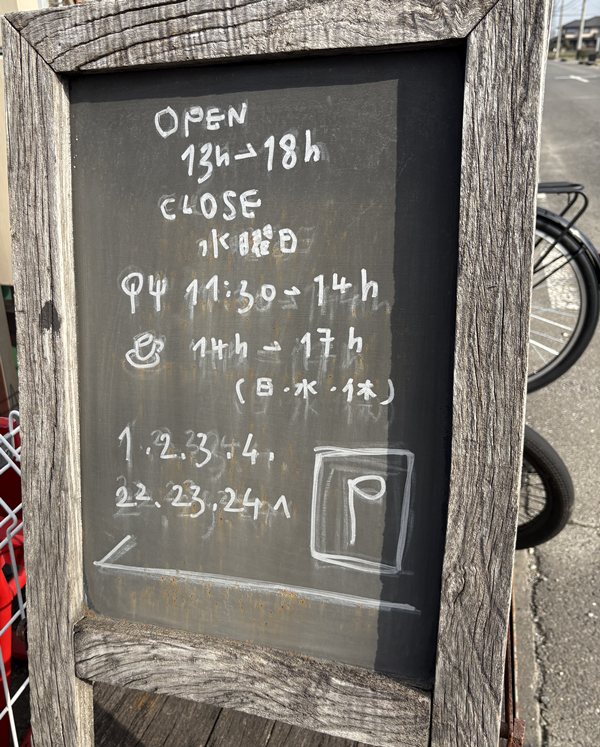 OPEN
13h→18h
CLOSE
水曜日
11:30→14h
14h→17h
(日・水・休)
1.2.3.4.
22.23.24^
P